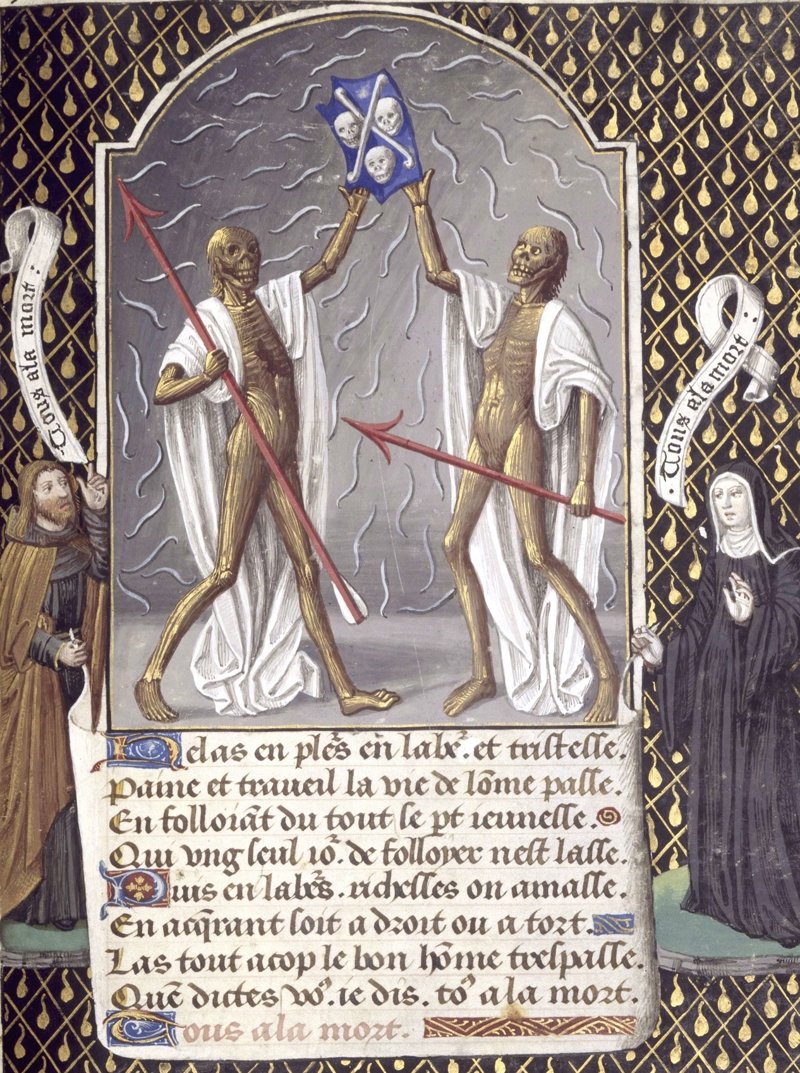 Tous ala mort :
Tous ala mort :
Helas en ple's en labe'. et tristesse.
Paine et traueil la vie de lõme passe.
En folloiant du tout se pt ieunesse.
Qui vng seul io'. de folloyer nest lasse.
Puis en labe's. richesses on amasse.
En acqrant soit a droit ou a tort.
Las tout acop le bon hõme trespasse.
Quẽ dictes vo'. ie dis. to' ala mort.
Tous ala mort.